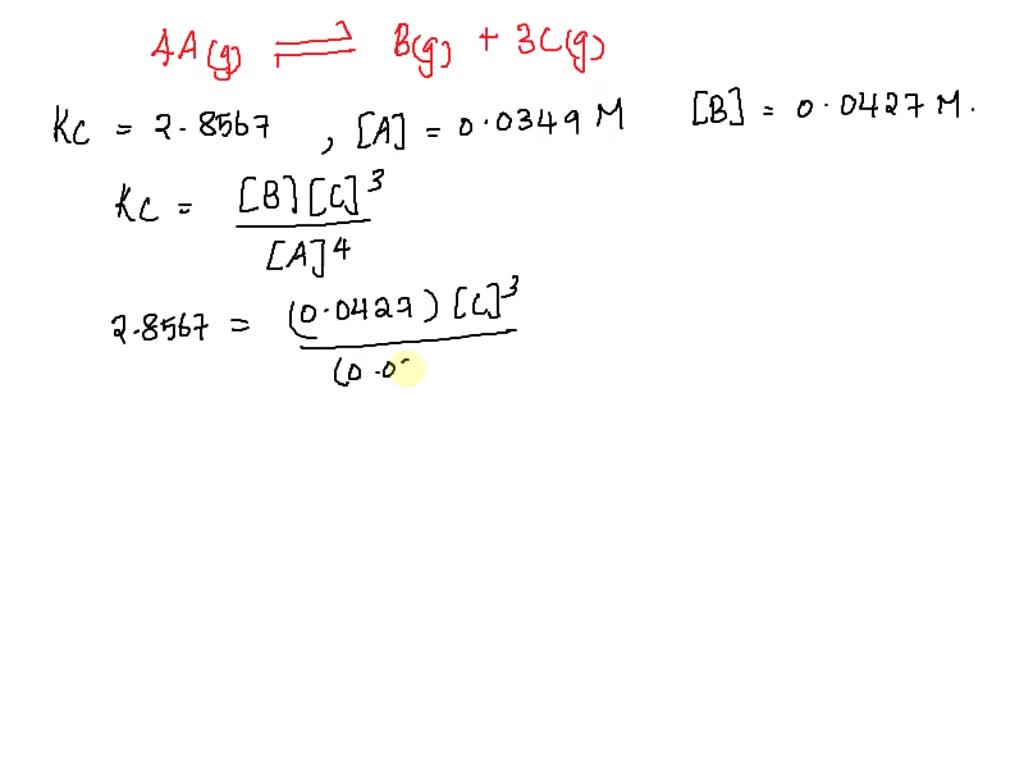 4A(g) ⇌ B(g) + 3C(g)
Kc = 2.8567 , [A] = 0.0349 M [B] = 0.0427 M.
Kc = [B][C]³ / [A]⁴
2.8567 = (0.0427) [C]³ / (0.0